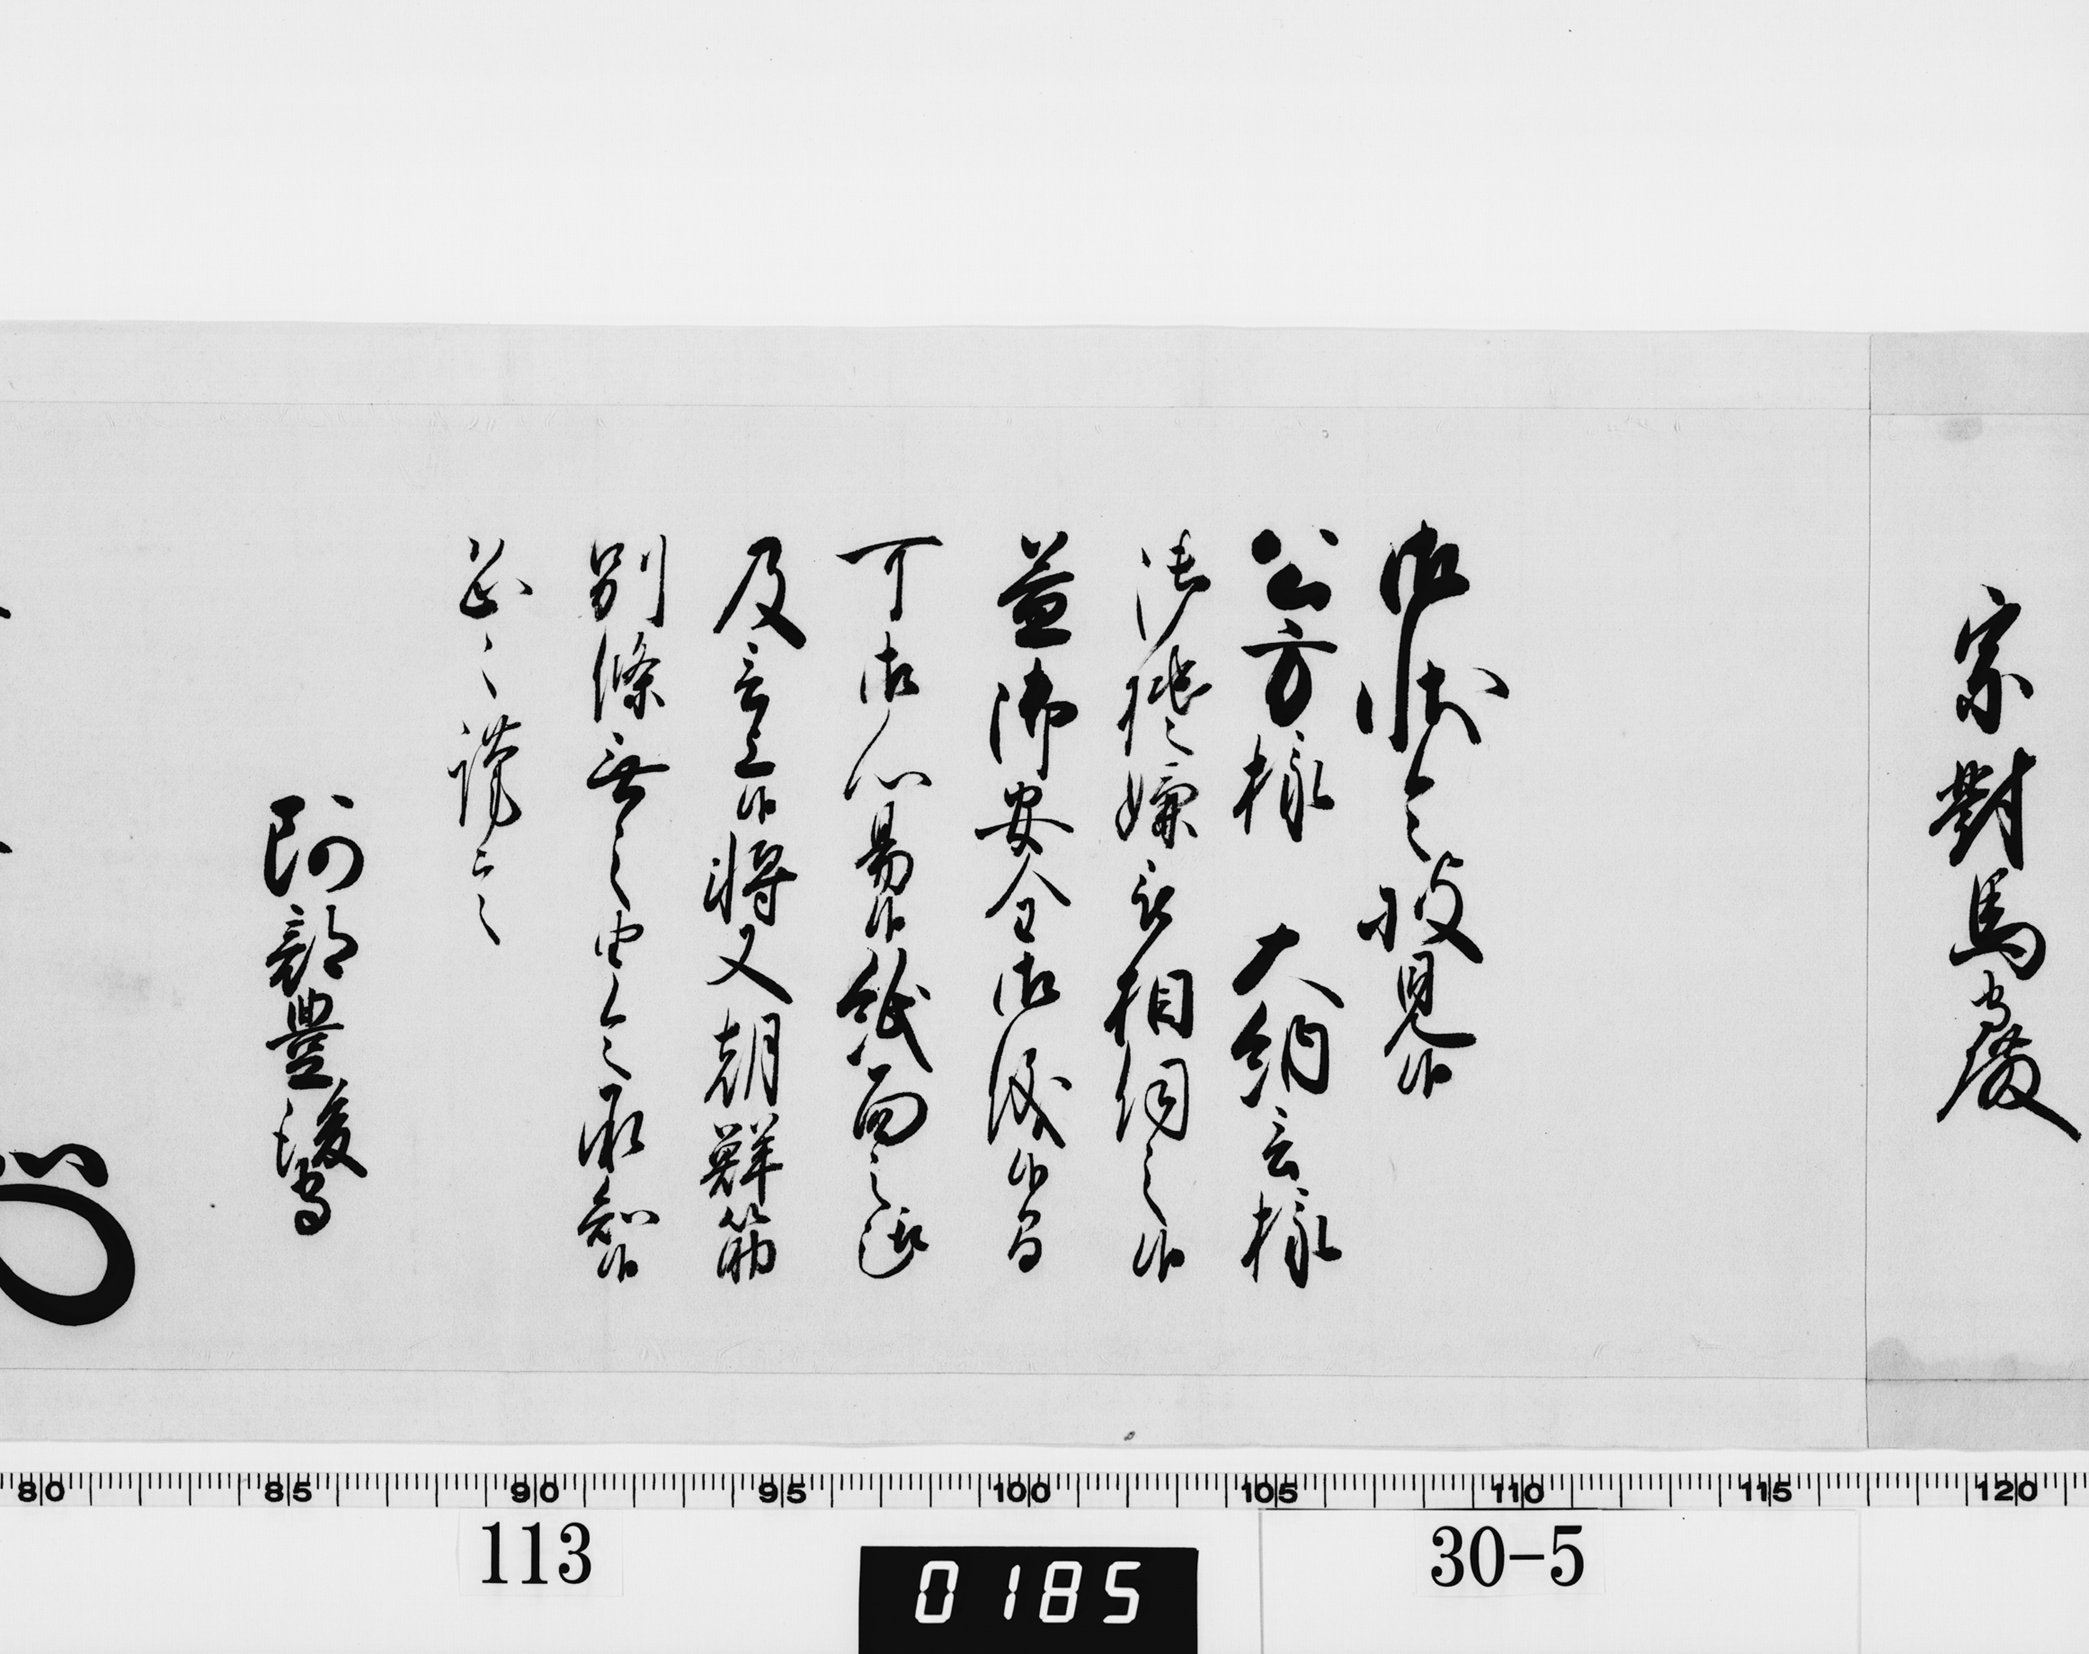 宗對馬守殿
御状令披見候
公方様 大納言様
御機嫌被相伺之候
益御安全御儀候間
可御心易候紙面之趣
及言上候将又朝鮮筋
別條無之由令承知候
恐々謹言
阿部豊後守
80 85 90 95 100 105 110 115 120
113
30-5
0185